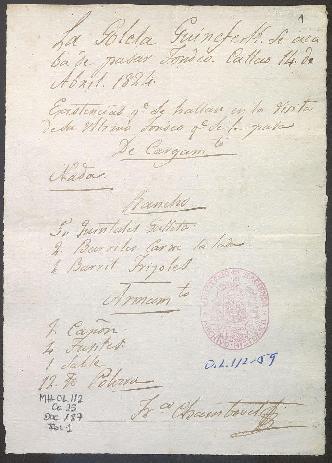 1
La Goleta Guinchester. Se aca
ba de pasar fondeo. Callao 14. de
Abril. 1824.
Existencias qe. se hallan en la visita
de su ultimo fondeo qe. se le pasa
De Cargamto
Nada
Rancho
Quintales Galleta
2 Barriles Carne salada
1 Barril Frijoles
Armamto
2. Cañon
4 Fusiles
1 Sable
12. Polvora
O.L. 112-159
MH OL 112
Ca 25
Doc 187
Fol 1